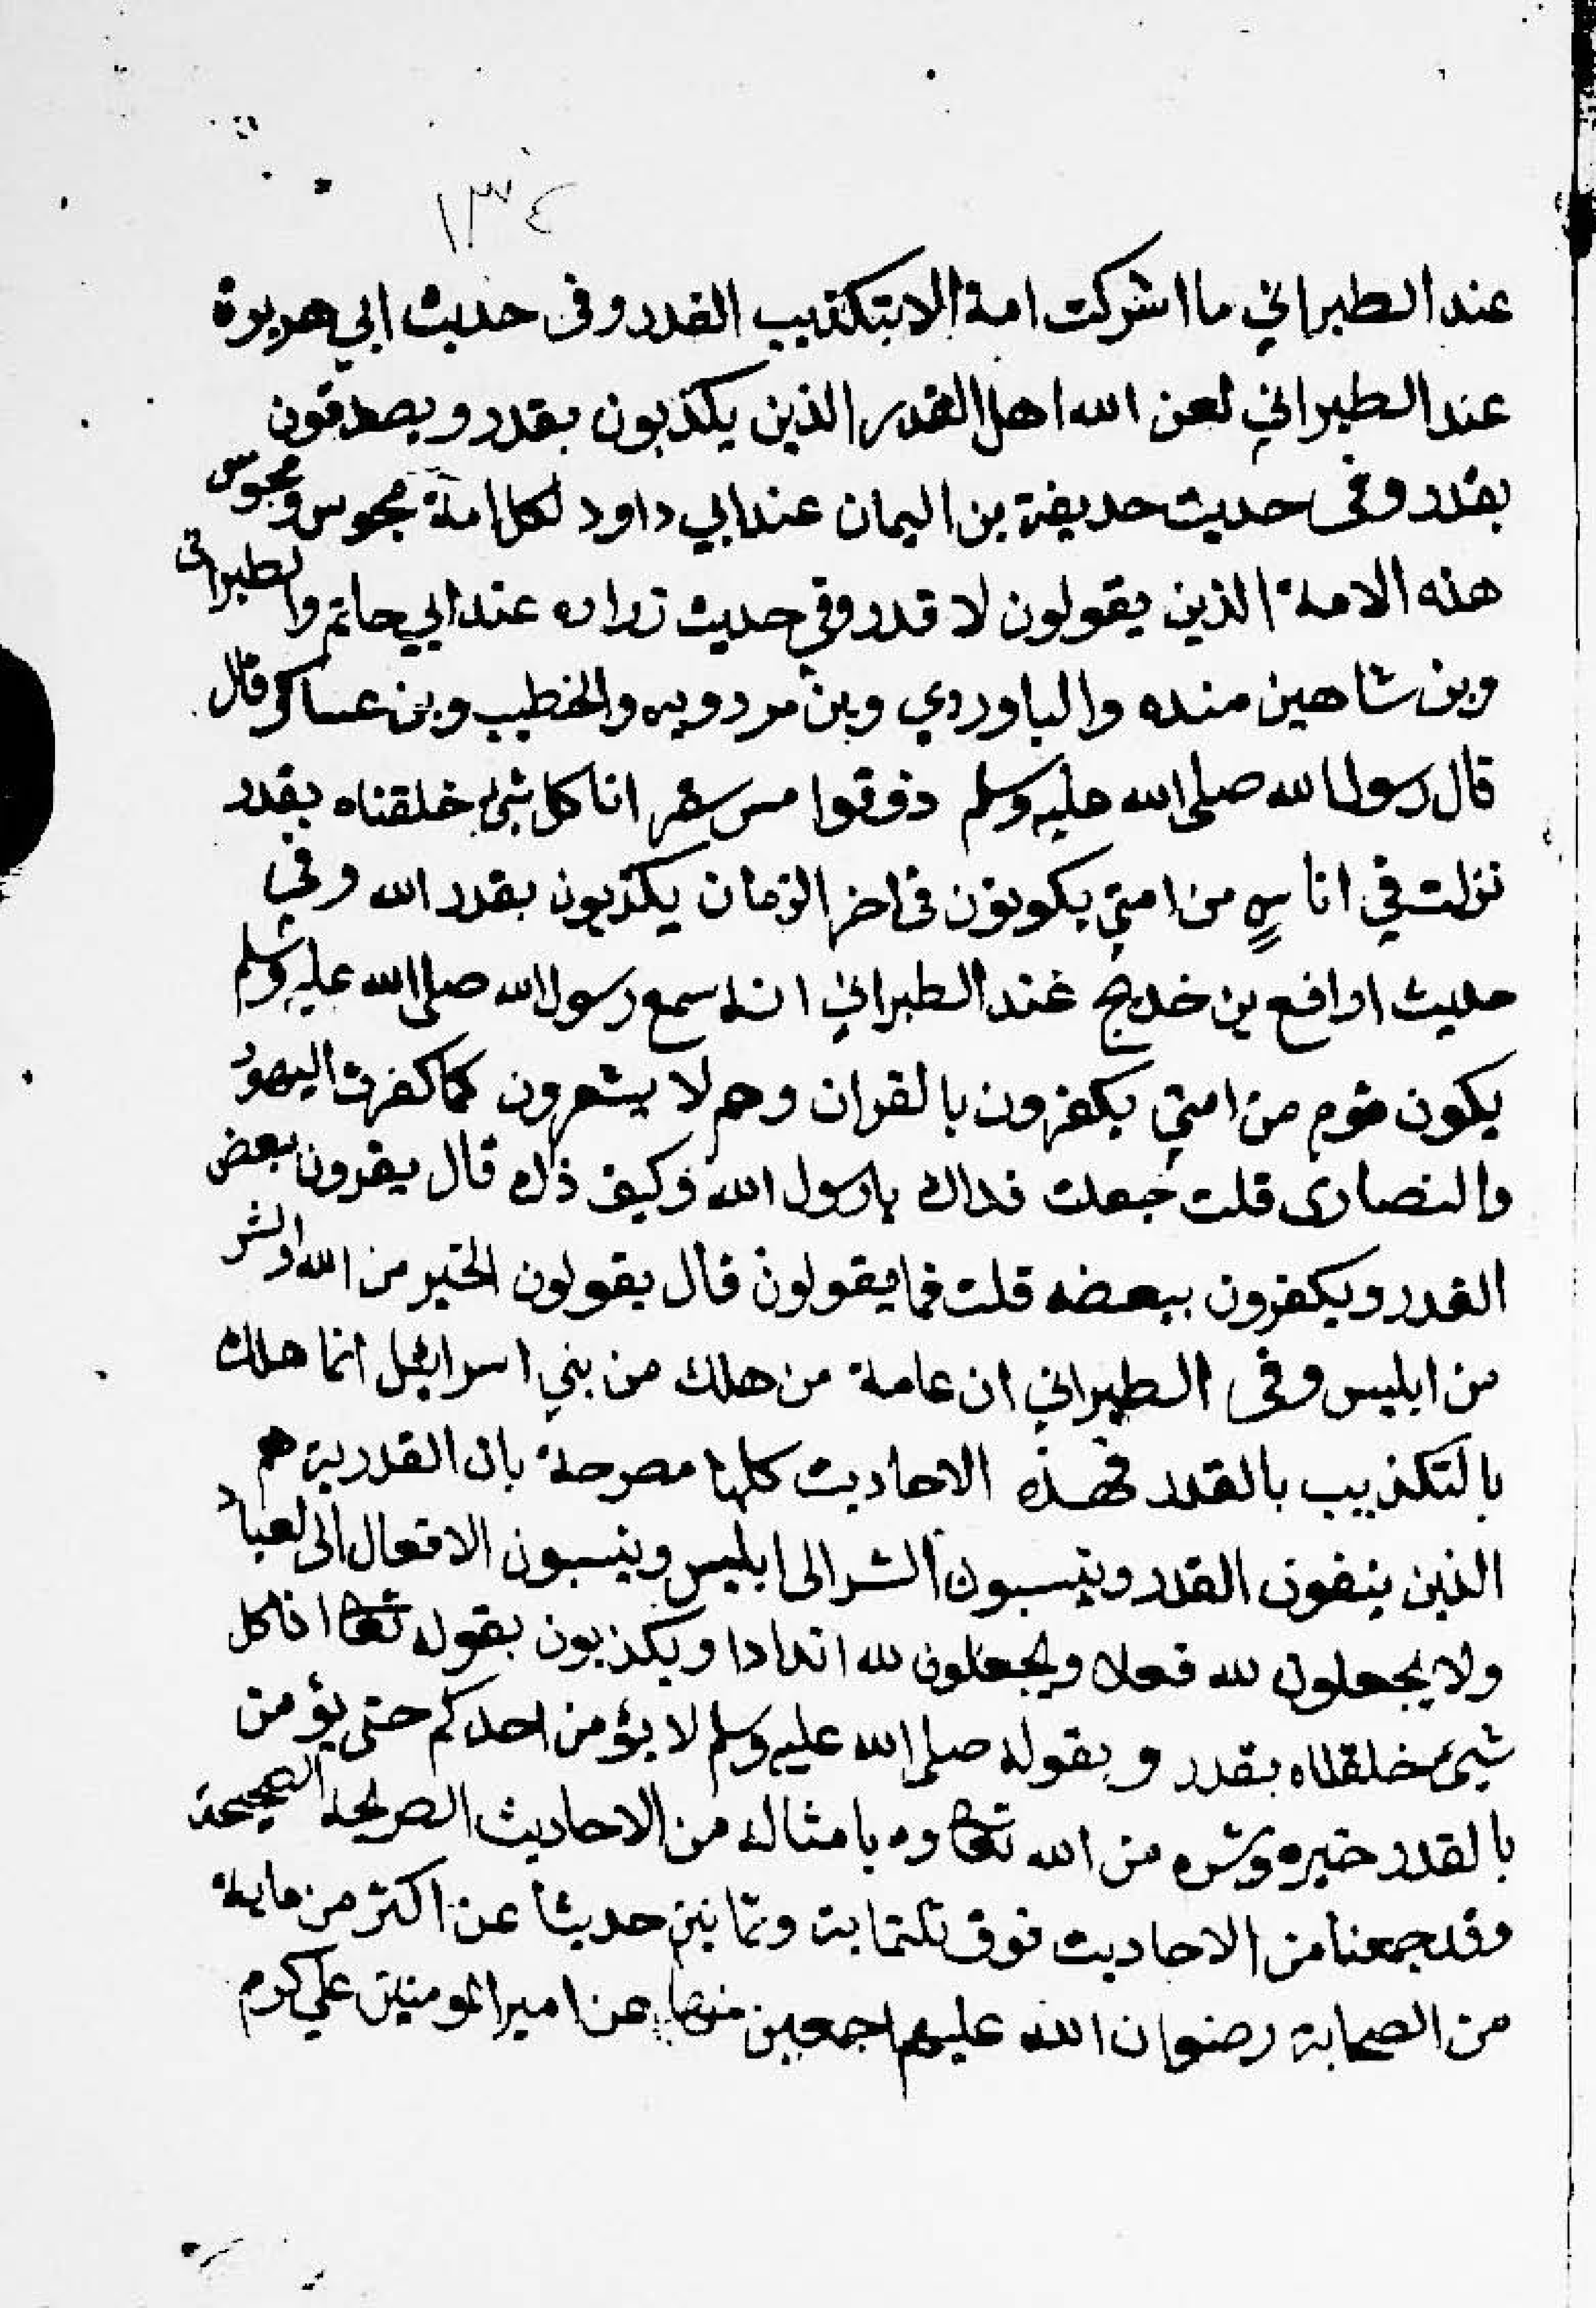 ١٣٤
عند الطبراني ما اشركت امة الا بتكذيب القدر وفى حديث ابي هريرة
عند الطبراني لعن الله اهل القدر الذين يكذبون بقدر ويصدقون
بقدر وفى حديث حديفة بن اليمان عند ابي داود لكل امة مجوس ومجوس
هذه الامة الذين يقولون لا قدر وفي حديث زراره عند ابي حاتم والطبراني
وبن شاهين منده والباوردي وبن مردويه والخطيب وبن عساكر قال
قال رسول الله صلى الله عليه وسلم ذوقوا مس سقر انا كل شئ خلقناه بقدر
نزلت في اناسٍ من امتي يكونون فى اخر الزمان يكذبون بقدر الله وفي
حديث ارافع بن خديج عند الطبراني انه سمع رسول الله صلى الله عليه وسلم
يكون قوم من امتي يكفرون بالقران وهم لا يشعرون كما كفرت اليهود
والنصارى قلت جعلت فداك يارسول الله وكيف ذلك قال يقرون بعض
القدر ويكفرون ببعضه قلت فما يقولون قال يقولون الخير من الله والشر
من ابليس وفى الطبراني ان عامة من هلك من بني اسرائيل انما هلك
بالتكذيب بالقدر فهذه الاحاديث كلها مصرحة بان القدرية هم
الذين ينفون القدر وينسبون الشر الى ابليس وينسبون الافعال الى العباد
ولا يجعلون لله فعلا ويجعلون لله اندادا ويكذبون بقوله تعا انا كل
شيئ خلقناه بقدر وبقوله صلى الله عليه وسلم لا يؤمن احدكم حتى يؤمن
بالقدر خيره وشره من الله تعا وبامثاله من الاحاديث الصريحة الصحيحة
وقد جمعنا من الاحاديث فوق ثلثماية وثمانين حديثا عن اكثر من ماية
من الصحابة رضوان الله عليهم اجمعين منها عن امير المومنين علي كرم